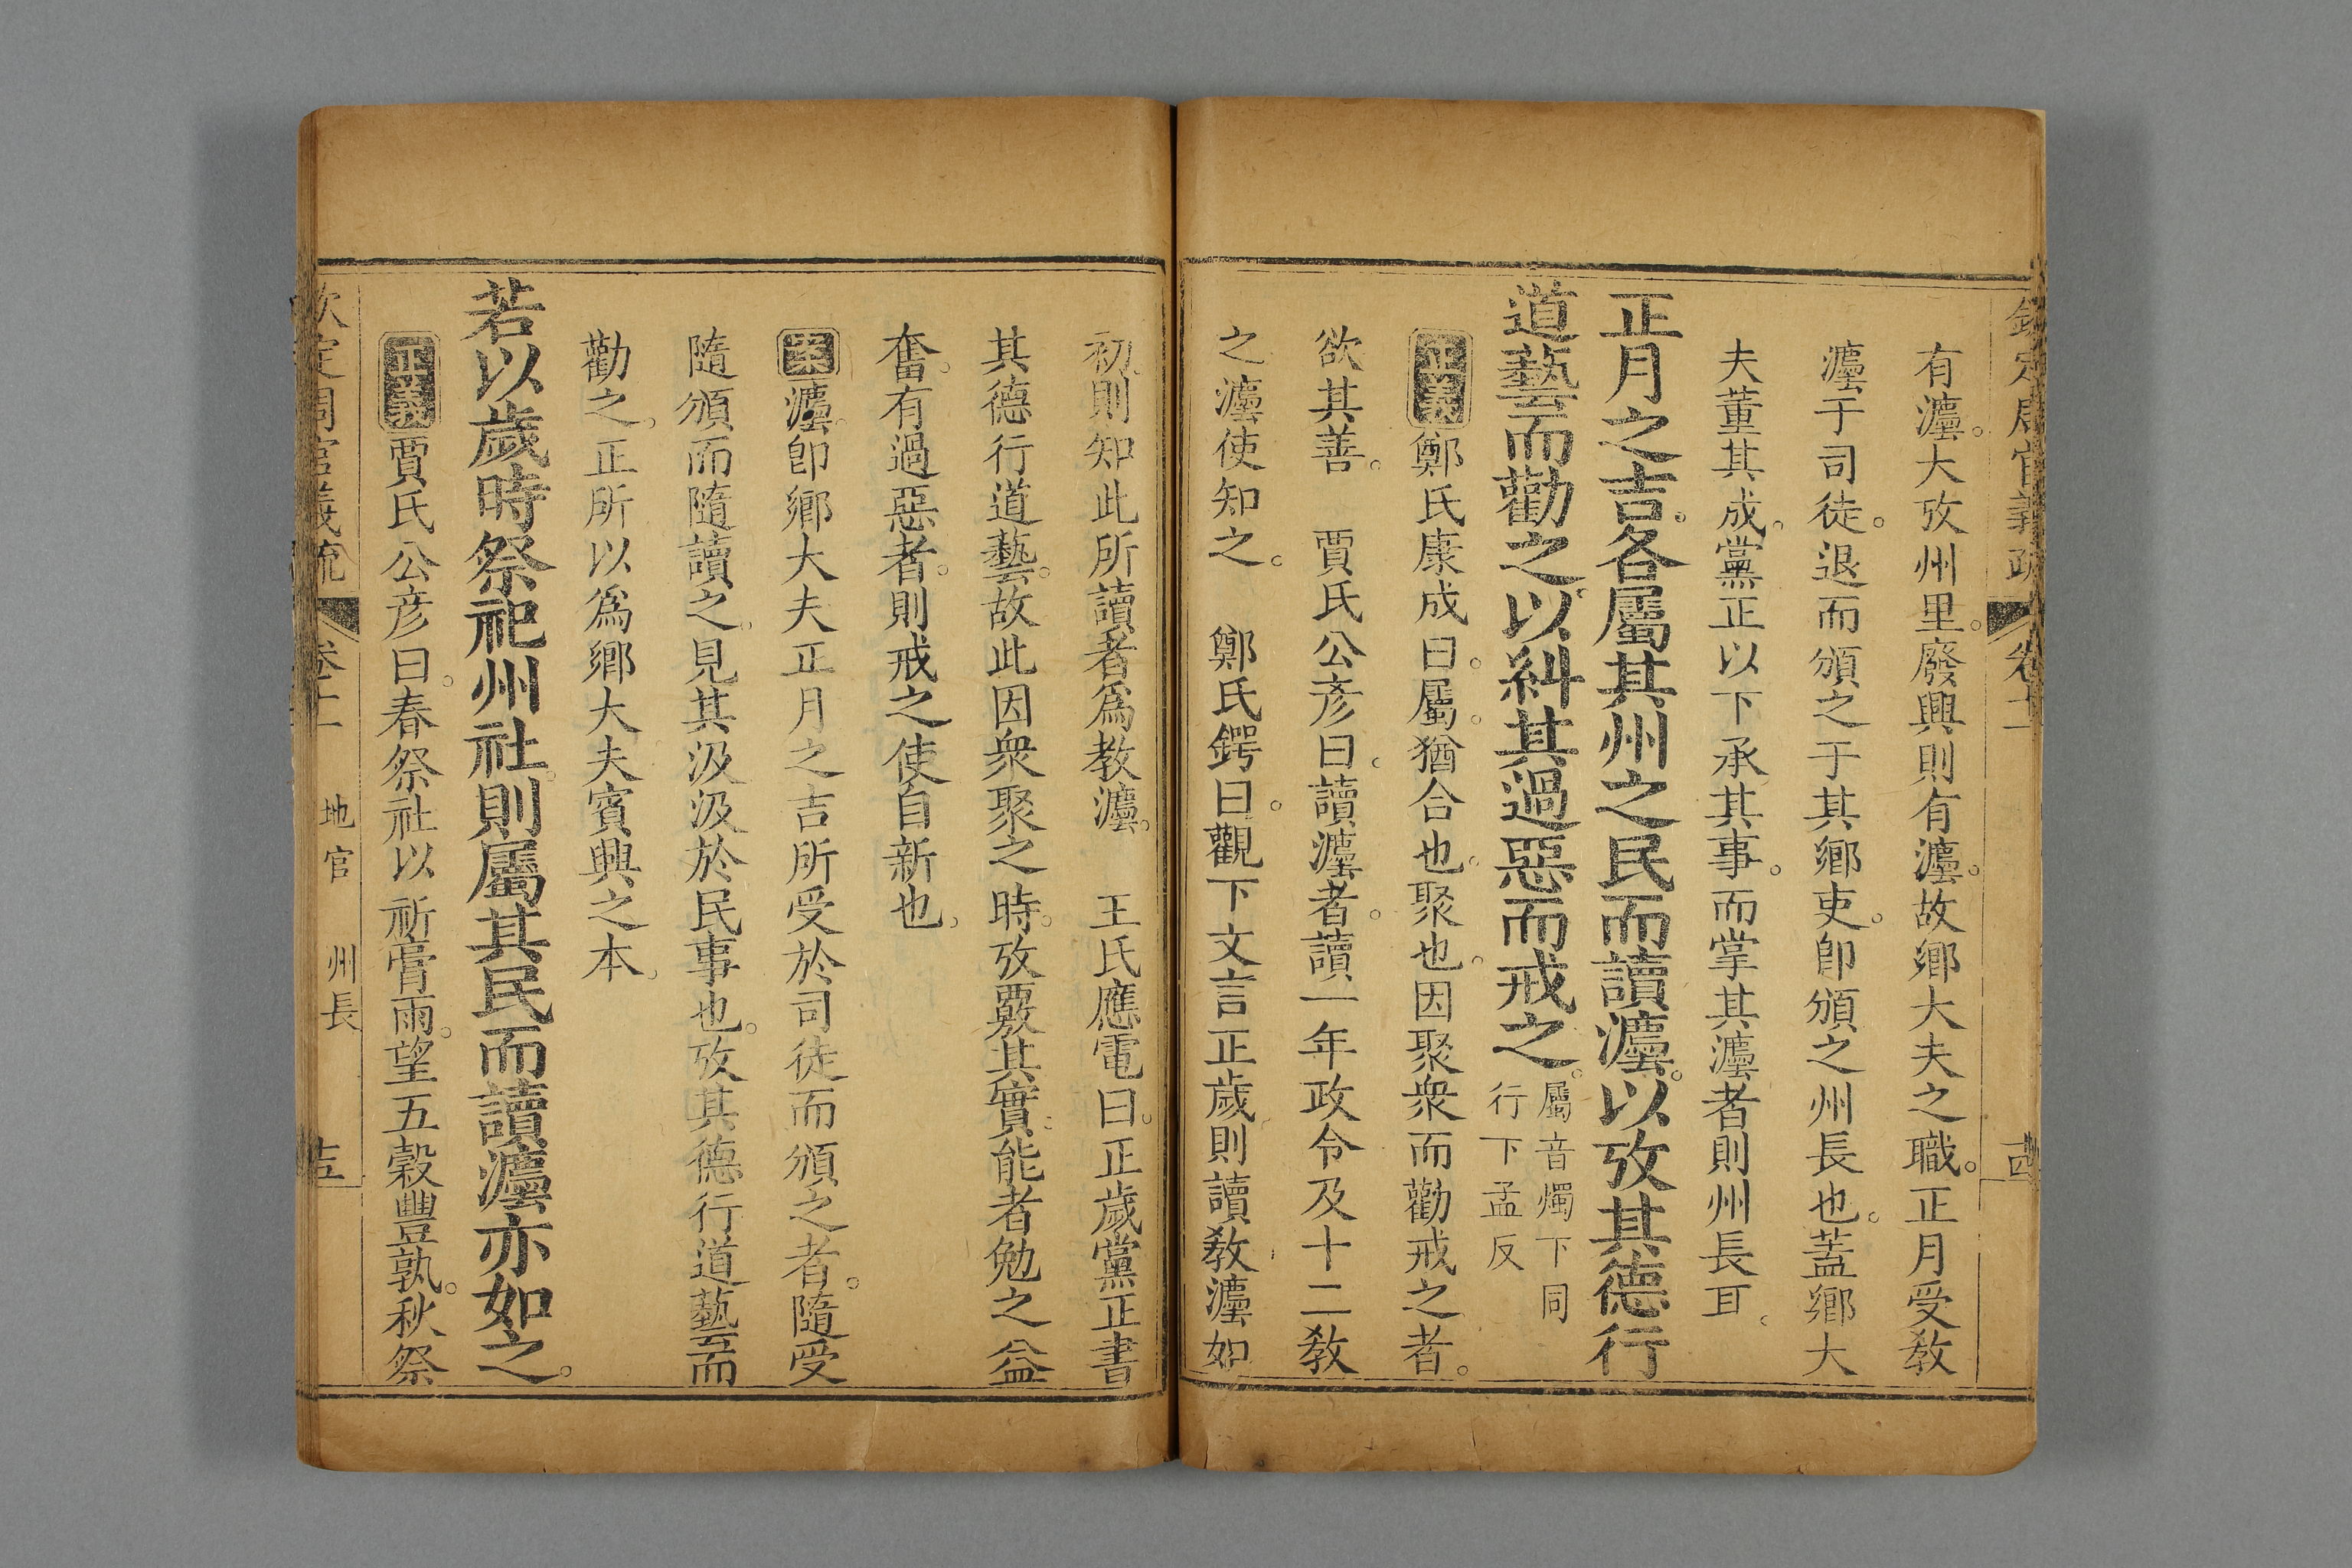 欽定周官義疏 卷十一 十四
有灋。大攷州里。廢興則有灋。故鄉大夫之職。正月受教
灋于司徒。退而頒之于其鄉吏。卽頒之州長也。蓋鄉大
夫董其成。黨正以下承其事。而掌其灋者則州長耳。
正月之吉。各屬其州之民而讀灋。以攷其德行
道藝而勸之。以糾其過惡而戒之。屬音燭下同
行下孟反
正義鄭氏康成曰。屬。猶合也。聚也。因聚衆而勸戒之者。
欲其善。 賈氏公彥曰。讀灋者。讀一年政令及十二教
之灋使知之。 鄭氏鍔曰。觀下文言正歲則讀教灋如
初。則知此所讀者爲教灋。 王氏應電曰。正歲黨正書
其德行道藝。故此因衆聚之時。攷覈其實。能者勉之益
奮。有過惡者。則戒之使自新也。
案灋。卽鄉大夫正月之吉所受於司徒而頒之者。隨受
隨頒而隨讀之。見其汲汲於民事也。攷其德行道藝而
勸之。正所以爲鄉大夫賓興之本。
若以歲時祭祀州社。則屬其民而讀灋亦如之。
正義賈氏公彥曰。春祭社以祈膏雨。望五穀豐孰。秋祭
欽定周官義疏 卷十一 地官 州長 十五